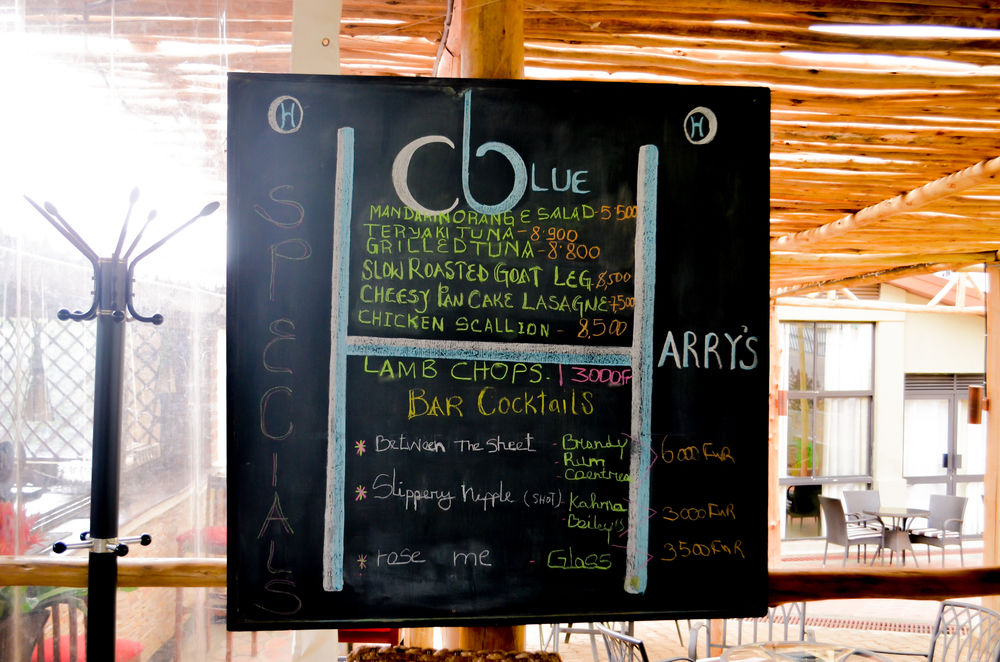 H
H
cbLUE
SPECIALS
MANDARIN ORANGE SALAD-5'500
TERYAKI TUNA-8.900
GRILLED TUNA-8'800
SLOW ROASTED GOAT LEG.8,500
CHEESY PAN CAKE LASAGNE 7,500
CHICKEN SCALLION - 8,500
HARRY'S
LAMB CHOPS. 13000F
BAR COCKTAILS
* Between The Sheet - Brandy 6000 FWR
Rum
* Slippery Nipple (SHOT) - Kahrna 3000 FWR
Beiley's
* rose me - Glass 3500 FWR